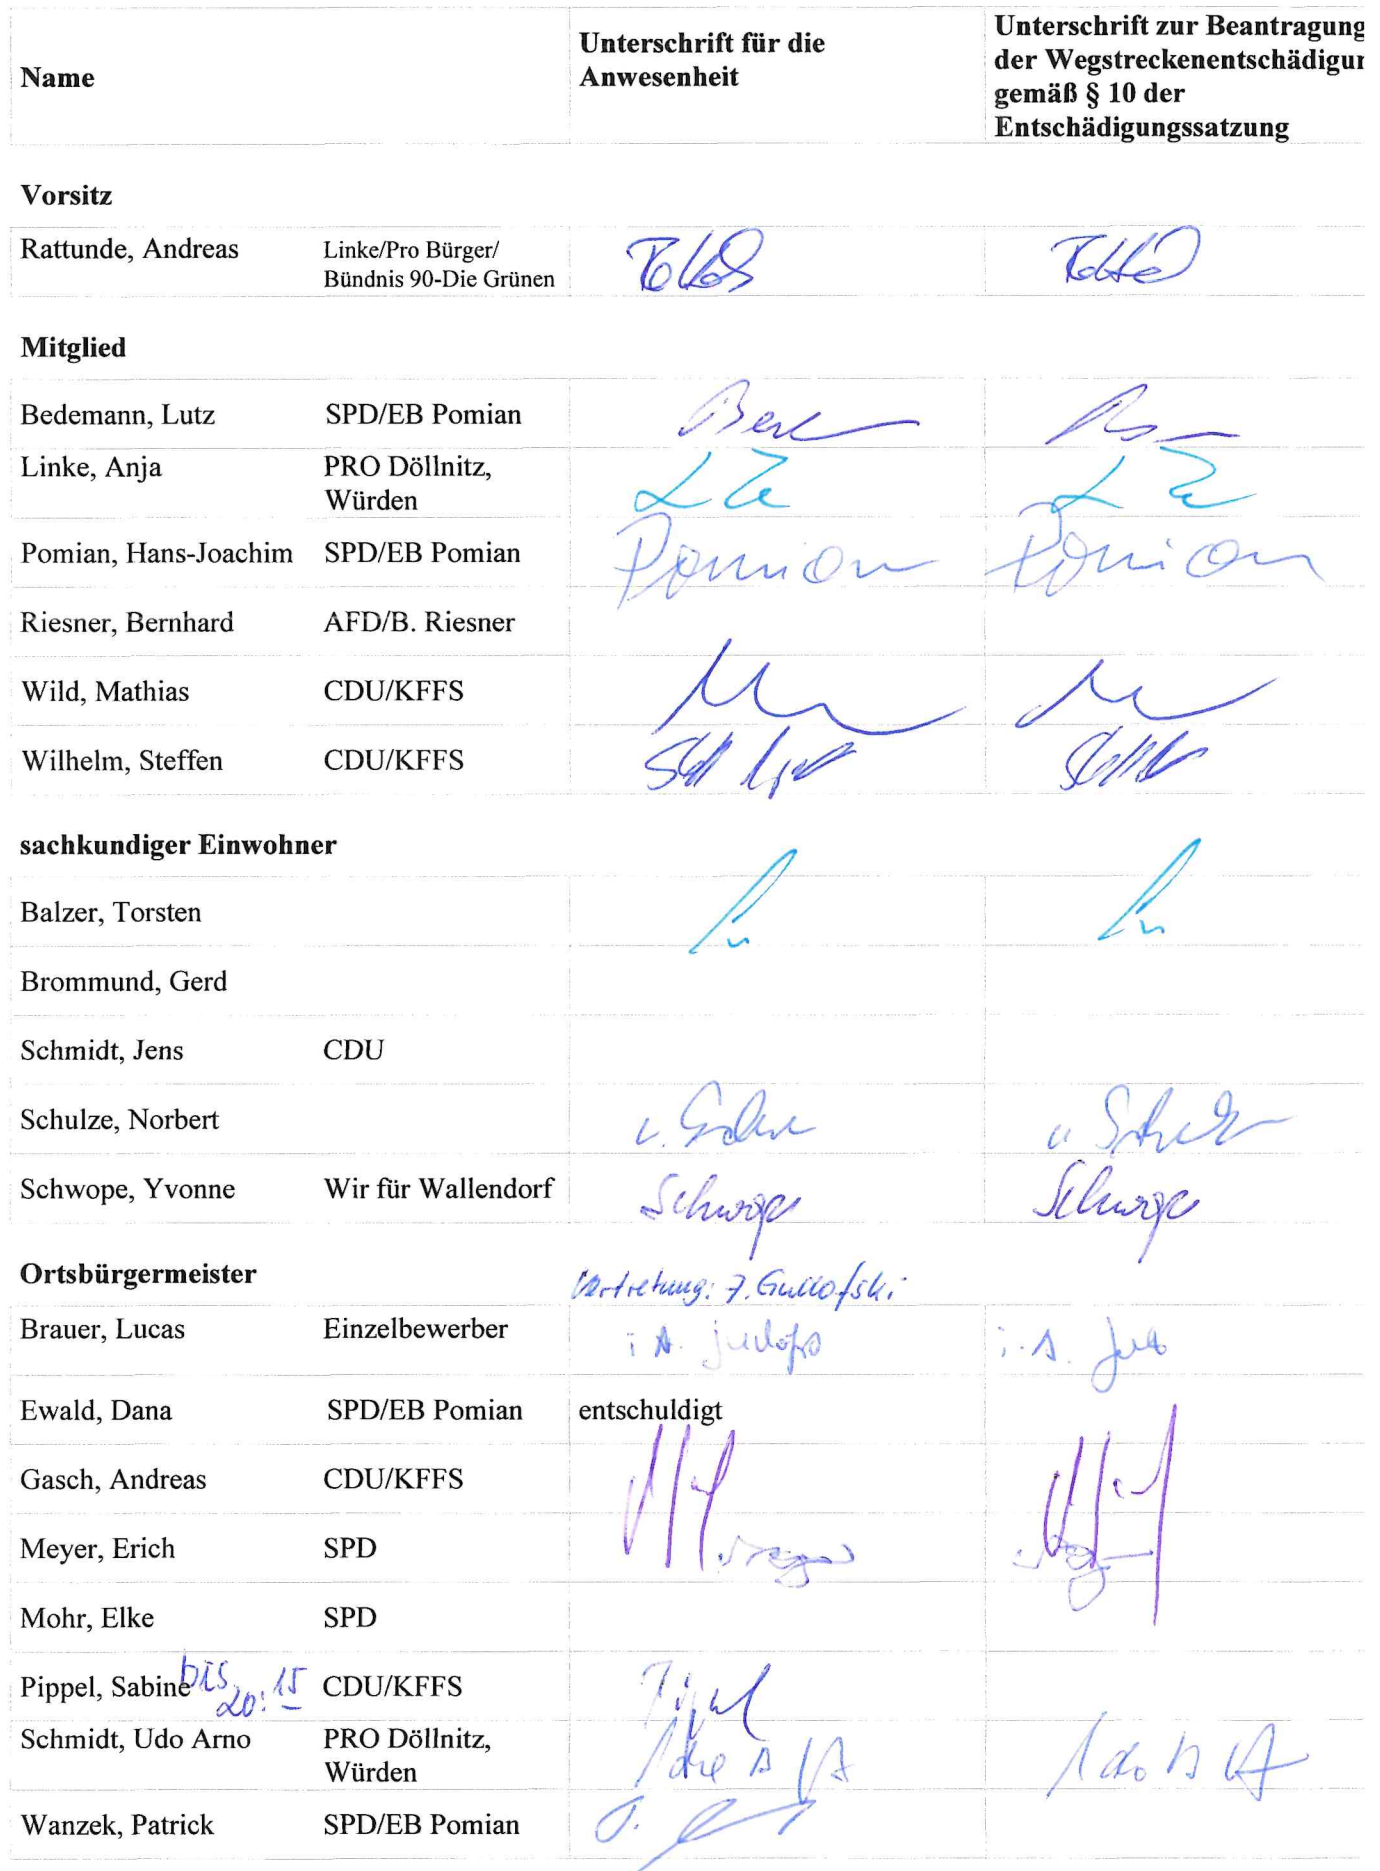 Name
Unterschrift für die
Anwesenheit
Unterschrift zur Beantragung
der Wegstreckenentschädigur
gemäß § 10 der
Entschädigungssatzung
Vorsitz
Rattunde, Andreas Linke/Pro Bürger/
Bündnis 90-Die Grünen
Mitglied
Bedemann, Lutz SPD/EB Pomian
Linke, Anja PRO Döllnitz,
Würden
Pomian, Hans-Joachim SPD/EB Pomian Pomian Pomian
Riesner, Bernhard AFD/B. Riesner
Wild, Mathias CDU/KFFS
Wilhelm, Steffen CDU/KFFS
sachkundiger Einwohner
Balzer, Torsten
Brommund, Gerd
Schmidt, Jens CDU
Schulze, Norbert
Schwope, Yvonne Wir für Wallendorf Schwope Schwope
Ortsbürgermeister
Vertretung: J. Gullofski
Brauer, Lucas Einzelbewerber i. A. i. A.
Ewald, Dana SPD/EB Pomian entschuldigt
Gasch, Andreas CDU/KFFS
Meyer, Erich SPD
Mohr, Elke SPD
Pippel, Sabine bis 20:15 CDU/KFFS
Schmidt, Udo Arno PRO Döllnitz,
Würden
Wanzek, Patrick SPD/EB Pomian